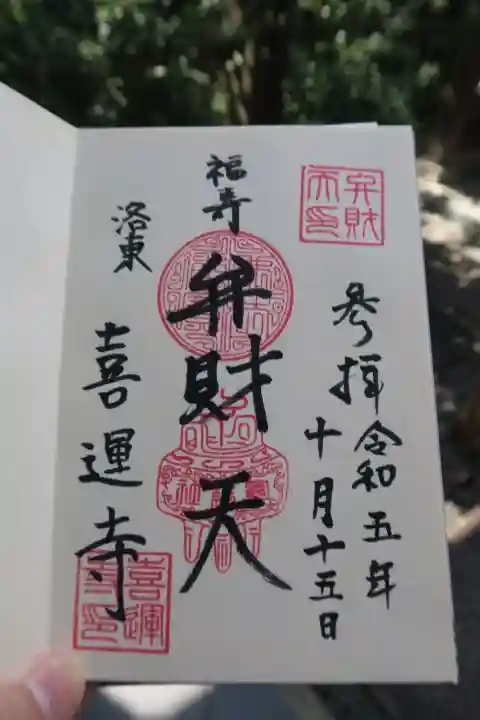 弁財
天印
参拝 令和五年
十月十五日
福寿
弁財天
洛東
喜運寺
喜運
寺印